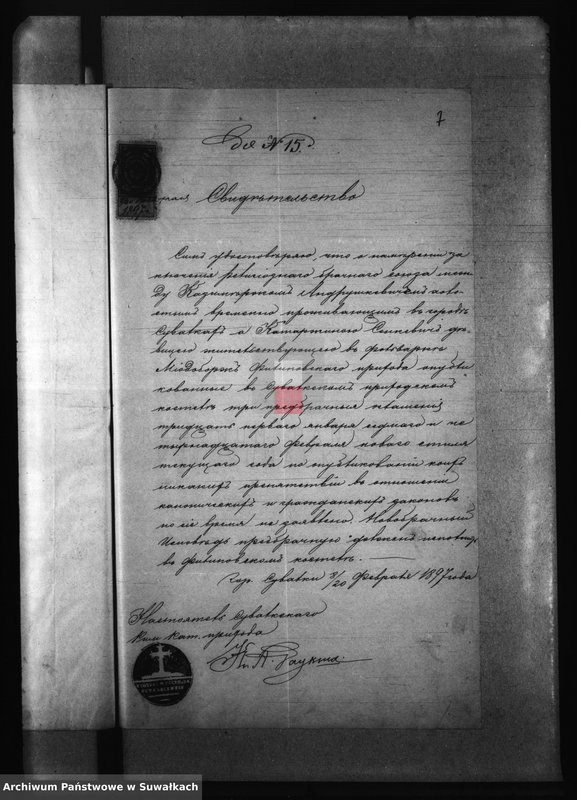 7
№ 15
Свидѣтельство
Симъ удостовѣряю, что о намѣреніи за-
ключенія религіознаго брачнаго союза меж-
ду Казимѣромъ Андрушкевичемъ холо-
стымъ временно проживающимъ въ городѣ
Сувалкахъ и Катаржиною Сенкевичъ дѣ-
вицею жительствующею въ фольваркѣ
Филиповскаго прихода опубли-
кованные въ Сувалкскомъ приходскомъ
костелѣ три предбрачныя оглашенія
тридцать перваго января седьмаго и че-
тырнадцатаго февраля новаго стиля
текущаго года по опубликованіи коихъ
никакихъ препятствій въ отношеніи
каноническихъ и гражданскихъ законовъ
по сіе время не заявлено. Новобрачный
Исповѣдь предбрачную долженъ исполнить
въ Филиповскомъ костелѣ.
гор. Сувалки 8/20 Февраля 1897 года
Настоятель Сувалкскаго
Рим. Кат. прихода
Archiwum Państwowe w Suwałkach